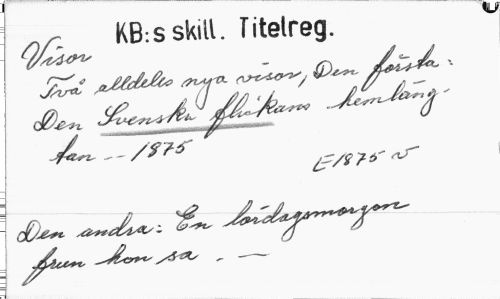 KB:s skill. Titelreg.
Visor
Två alldeles nya visor, Den första:
Den Svenska flickans hemläng-
tan -- 1875
E1875 v
Den andra: En lördagsmorgon
frun hon sa . —